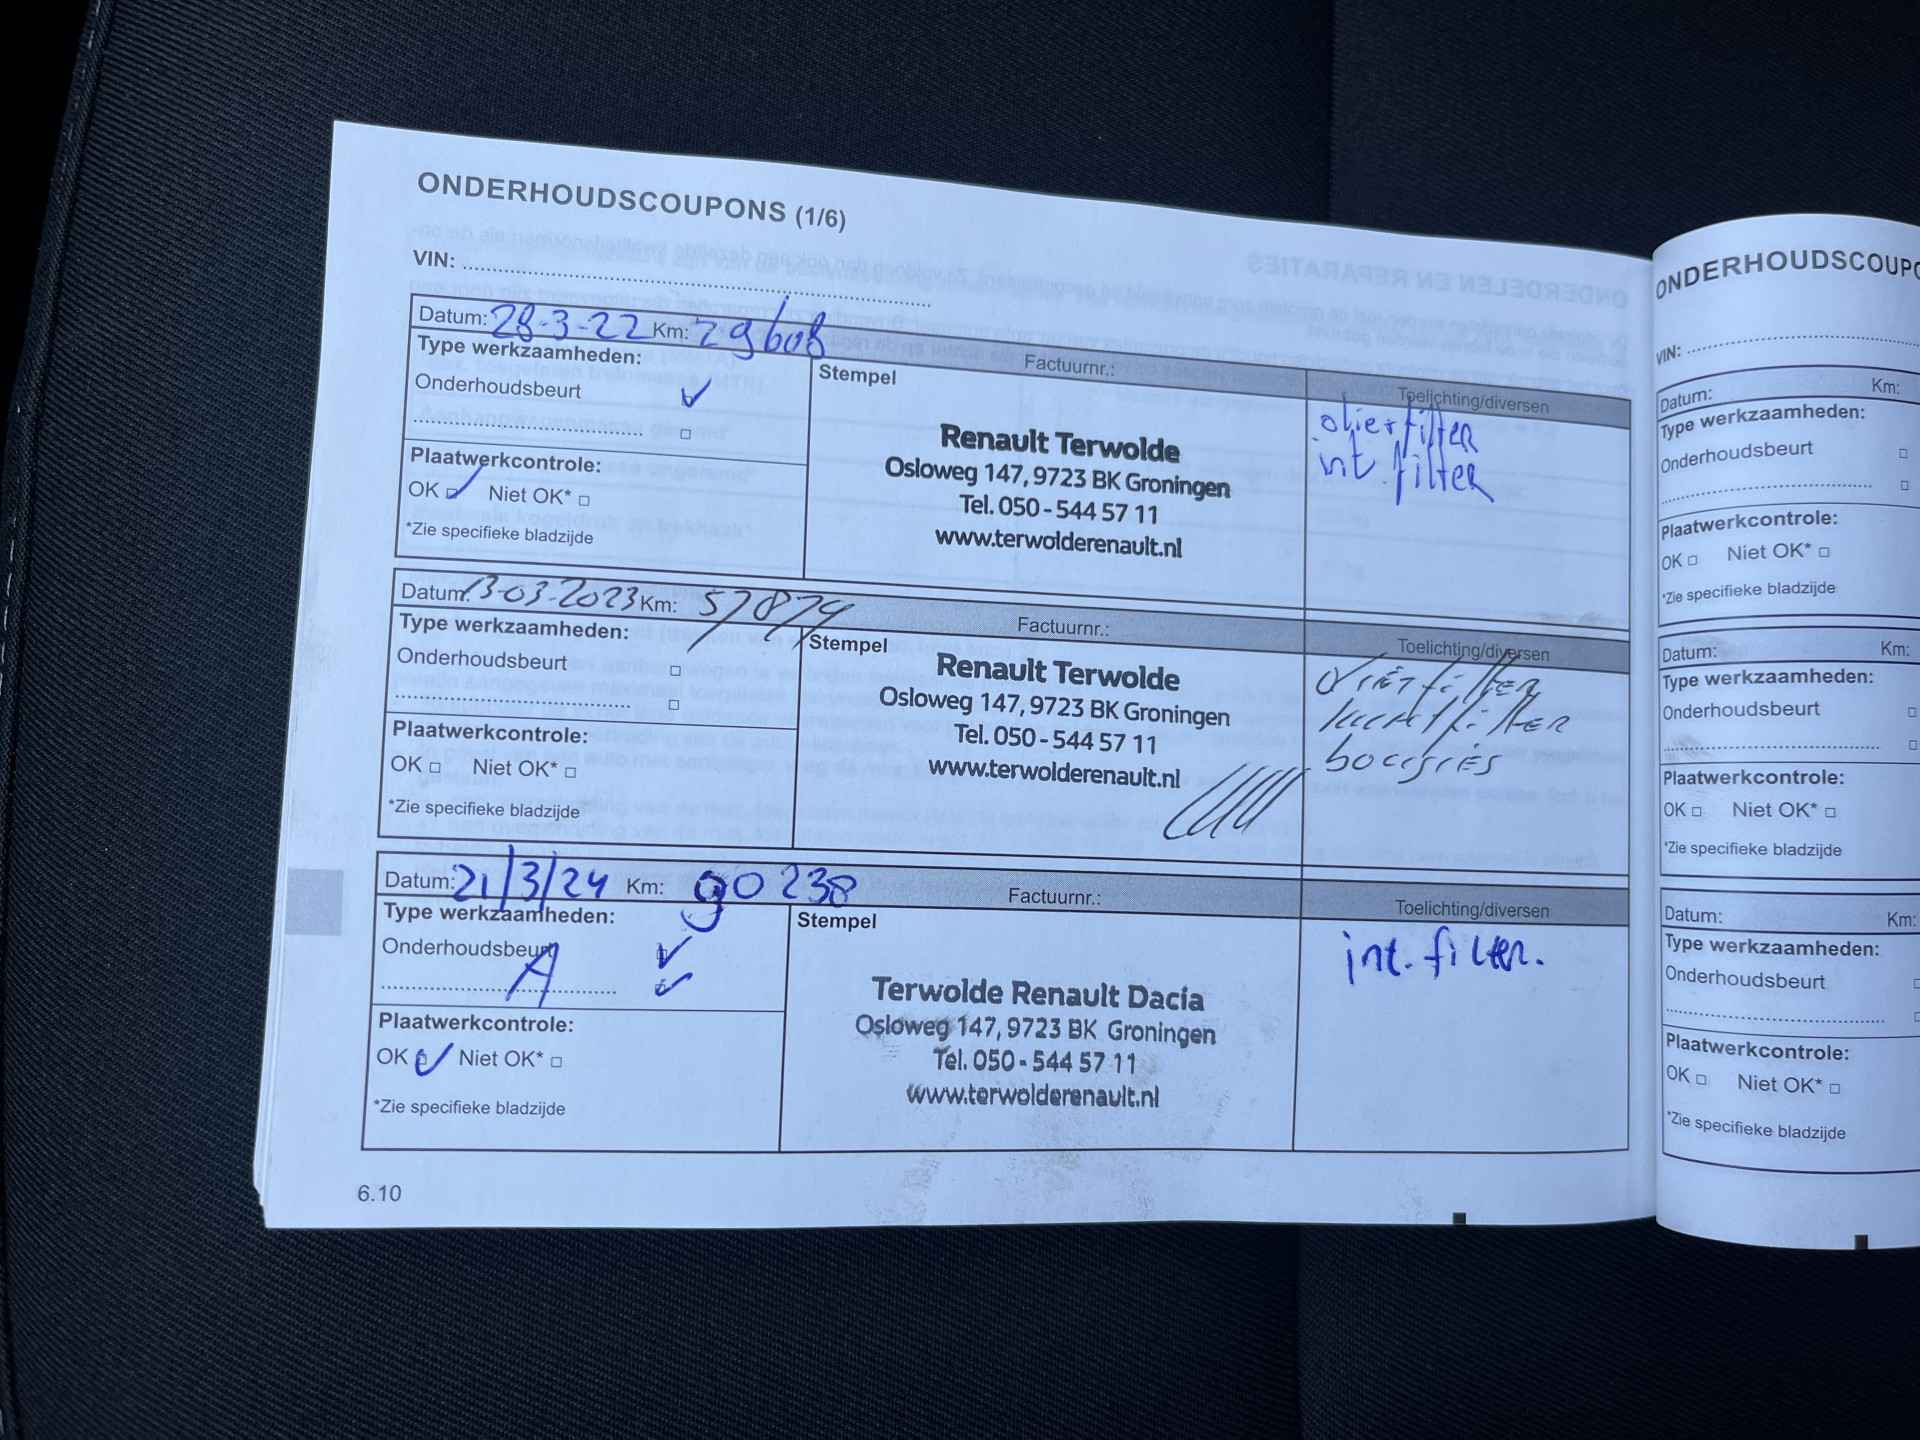 ONDERHOUDSCOUPONS (1/6)
VIN:
Datum: 28-3-22 Km: 29608
Factuurnr.:
Toelichting/diversen
Type werkzaamheden:
Onderhoudsbeurt
Plaatwerkcontrole:
OK Niet OK*
*Zie specifieke bladzijde
Stempel
Renault Terwolde
Osloweg 147, 9723 BK Groningen
Tel. 050 - 544 57 11
www.terwolderenault.nl
olie+filter
int. filter
Datum: 13-03-2023 Km: 57874
Factuurnr.:
Toelichting/diversen
Type werkzaamheden:
Onderhoudsbeurt
Plaatwerkcontrole:
OK Niet OK*
*Zie specifieke bladzijde
Stempel
Renault Terwolde
Osloweg 147, 9723 BK Groningen
Tel. 050 - 544 57 11
www.terwolderenault.nl
luchtfilter
bougies
Datum: 21/3/24 Km: 90238
Factuurnr.:
Toelichting/diversen
Type werkzaamheden:
Onderhoudsbeurt
A
Plaatwerkcontrole:
OK Niet OK*
*Zie specifieke bladzijde
Stempel
Terwolde Renault Dacia
Osloweg 147, 9723 BK Groningen
Tel. 050 - 544 57 11
www.terwolderenault.nl
int. filter.
6.10
ONDERHOUDSCOUPO
VIN:
Datum: Km:
Type werkzaamheden:
Onderhoudsbeurt
Plaatwerkcontrole:
OK Niet OK*
*Zie specifieke bladzijde
Datum: Km:
Type werkzaamheden:
Onderhoudsbeurt
Plaatwerkcontrole:
OK Niet OK*
*Zie specifieke bladzijde
Datum: Km:
Type werkzaamheden:
Onderhoudsbeurt
Plaatwerkcontrole:
OK Niet OK*
*Zie specifieke bladzijde